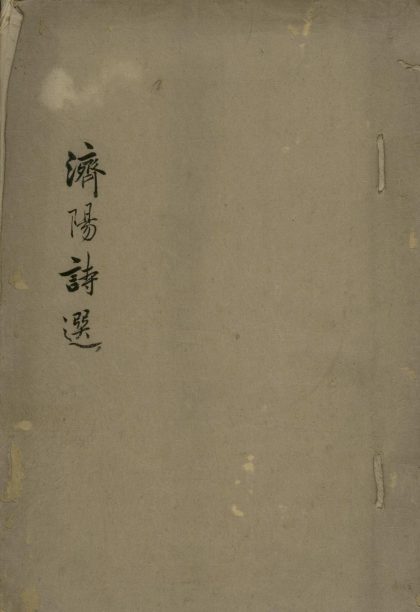 濟陽詩選